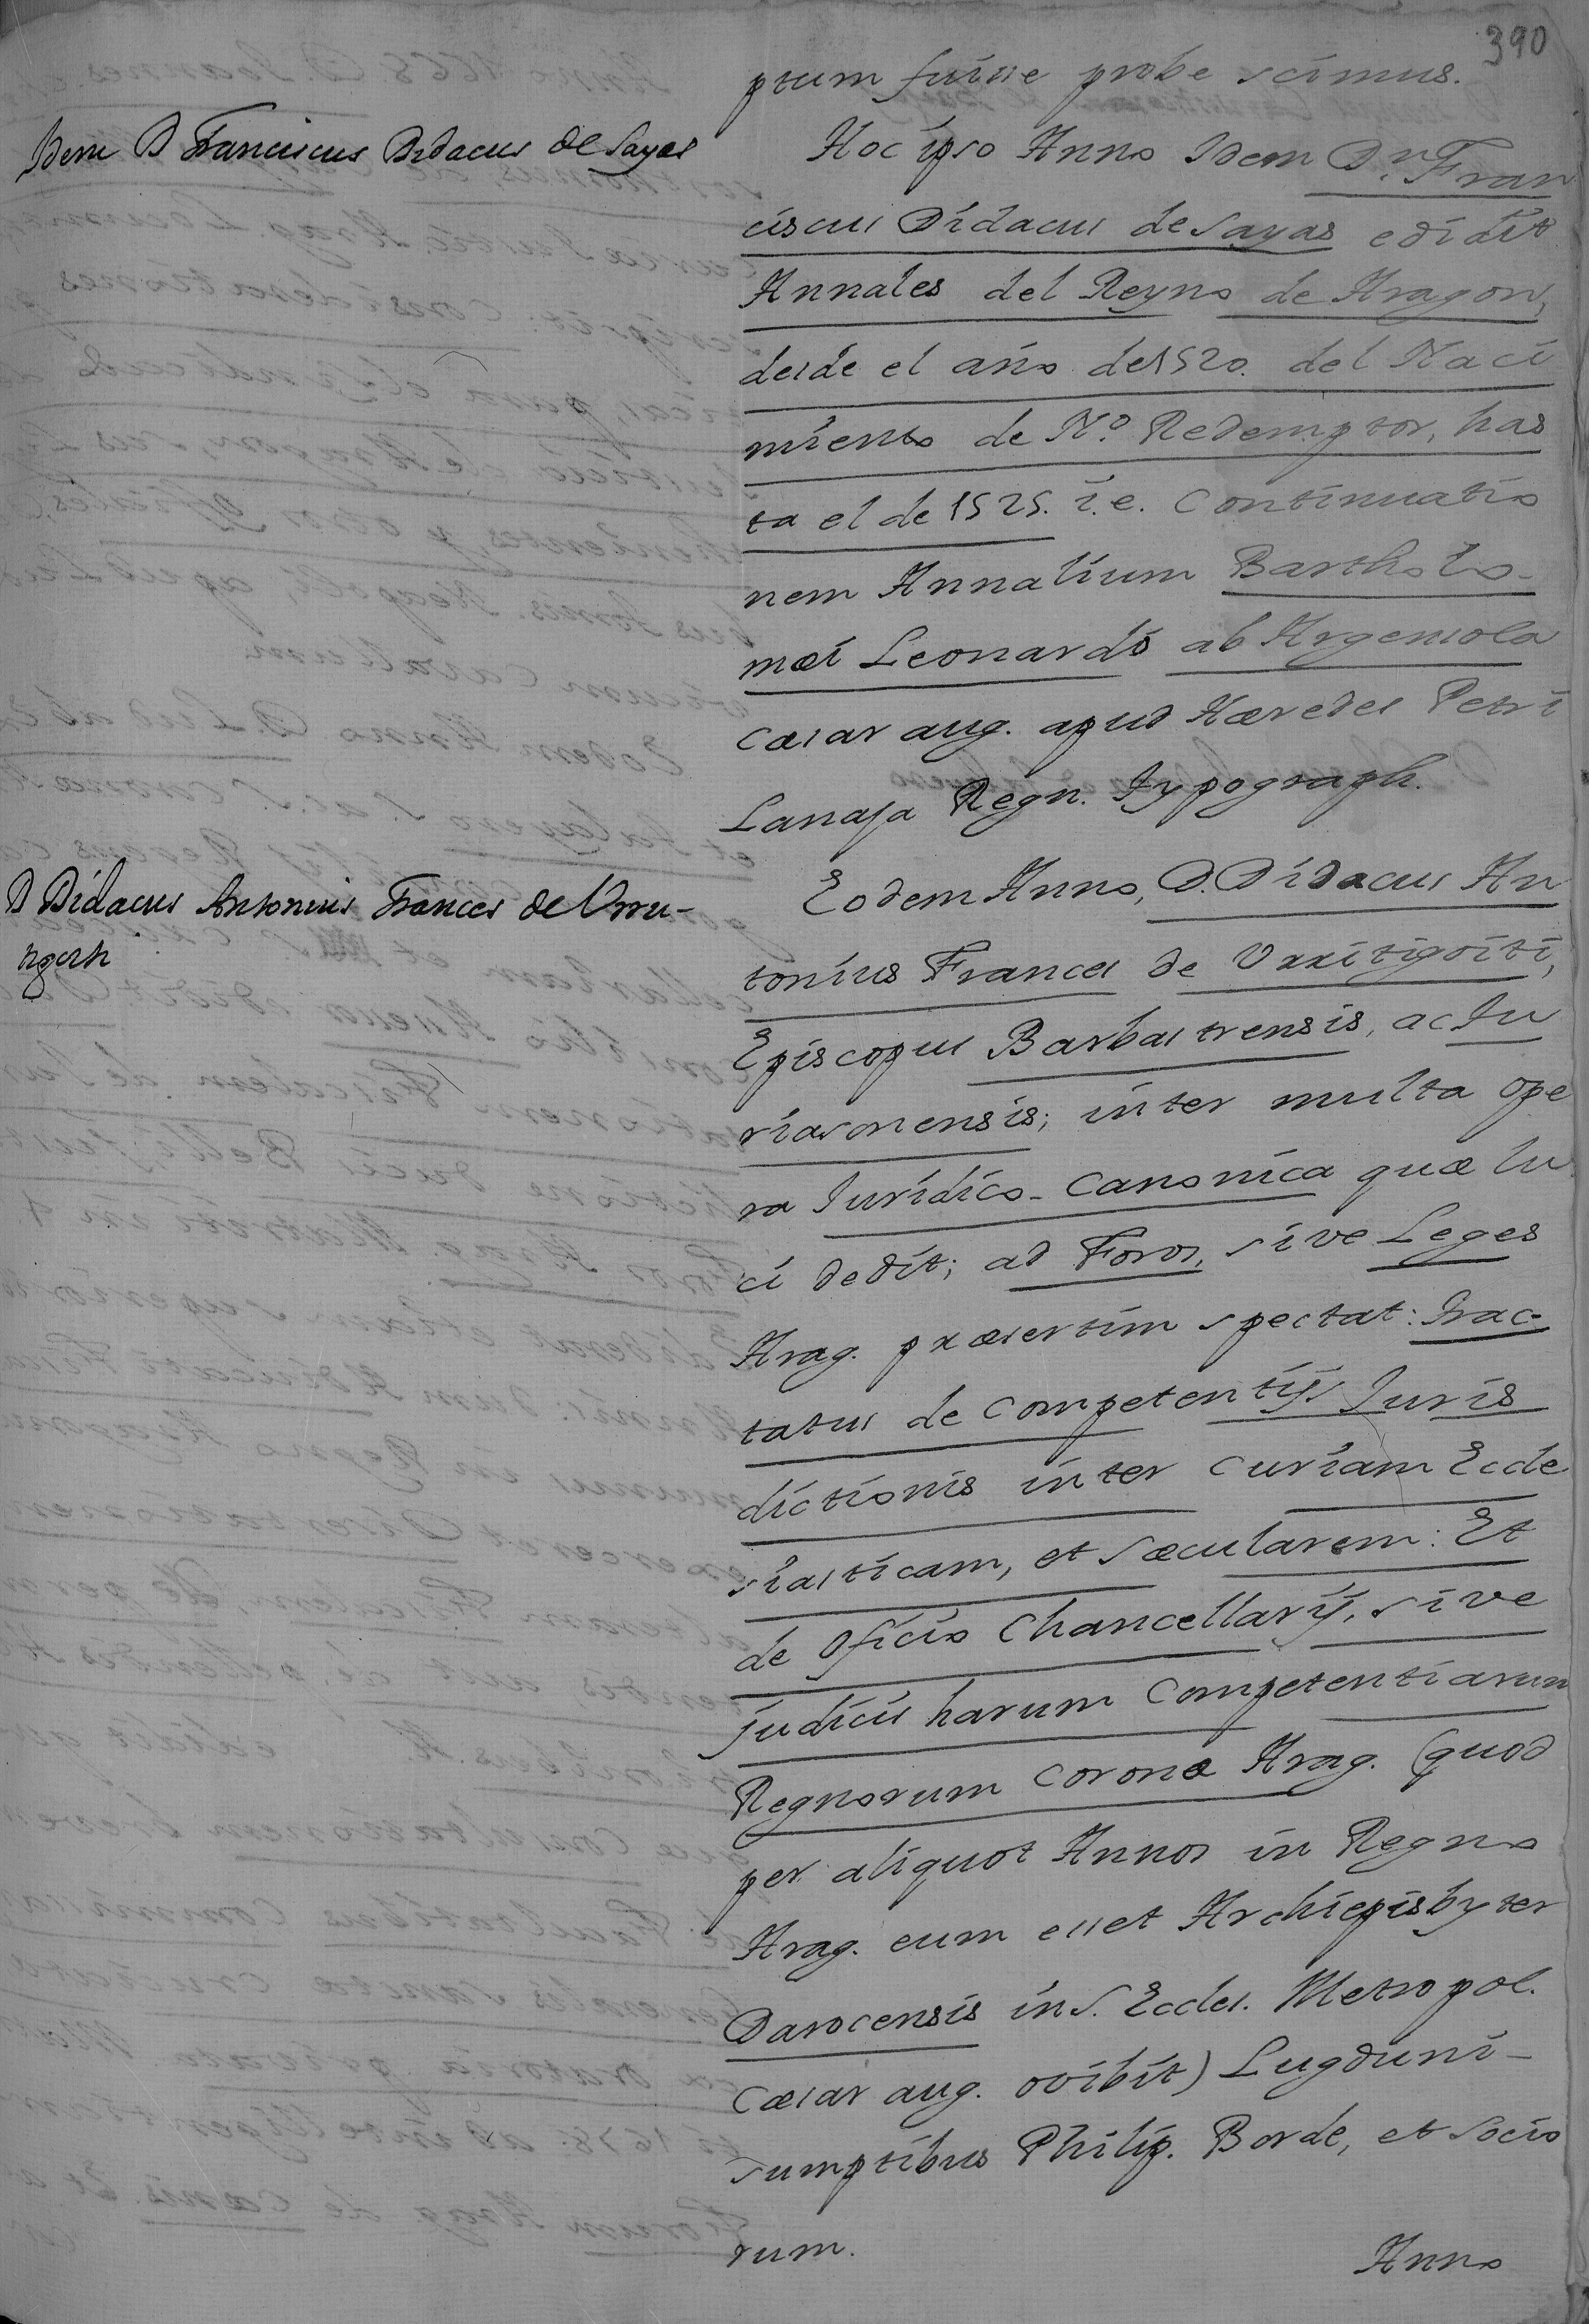 390
ptum fuisse probe scimus.
Idem D Franciscus Didacus de Sayas
Hoc ipso Anno Idem Dr. Fran
ciscus Didacus de Sayas edidit
Annales del Reyno de Aragon,
desde el año de 1520. del Naci
miento de No. Redemptor, has
ta el de 1525. i.e. Continuatio
nem Annalium Bartholo-
mæi Leonardo ab Argensola
Cæsar aug. apud Hæredes Petri
Lanaja Regn. Typograph.
D Didacus Antonius Frances de Urru-
tigoiti
Eodem Anno, D. Didacus An
tonius Frances de Urritigoiti,
Episcopus Barbastrensis, ac Tu
riasonensis; inter multa ope
ra Iuridico-Canonica quæ lu
ci dedit; ad Foros, sive Leges
Arag. præsertim spectat: Trac-
tatus de Competentijs Iuris
dictionis inter Curiam Eccle
siasticam, et Sæcularem: Et
de Oficio Chancellarij, sive
judicis harum Competentiarum
Regnorum Coronæ Arag. (quod
per aliquot Annos in Regno
Arag. cum esset Archiepisbyter
Darocensis in S. Eccles. Metropol.
Cæsar aug. ovibit) Lugduni-
Sumptibus Philip. Borde, et Socio
rum.
Anno